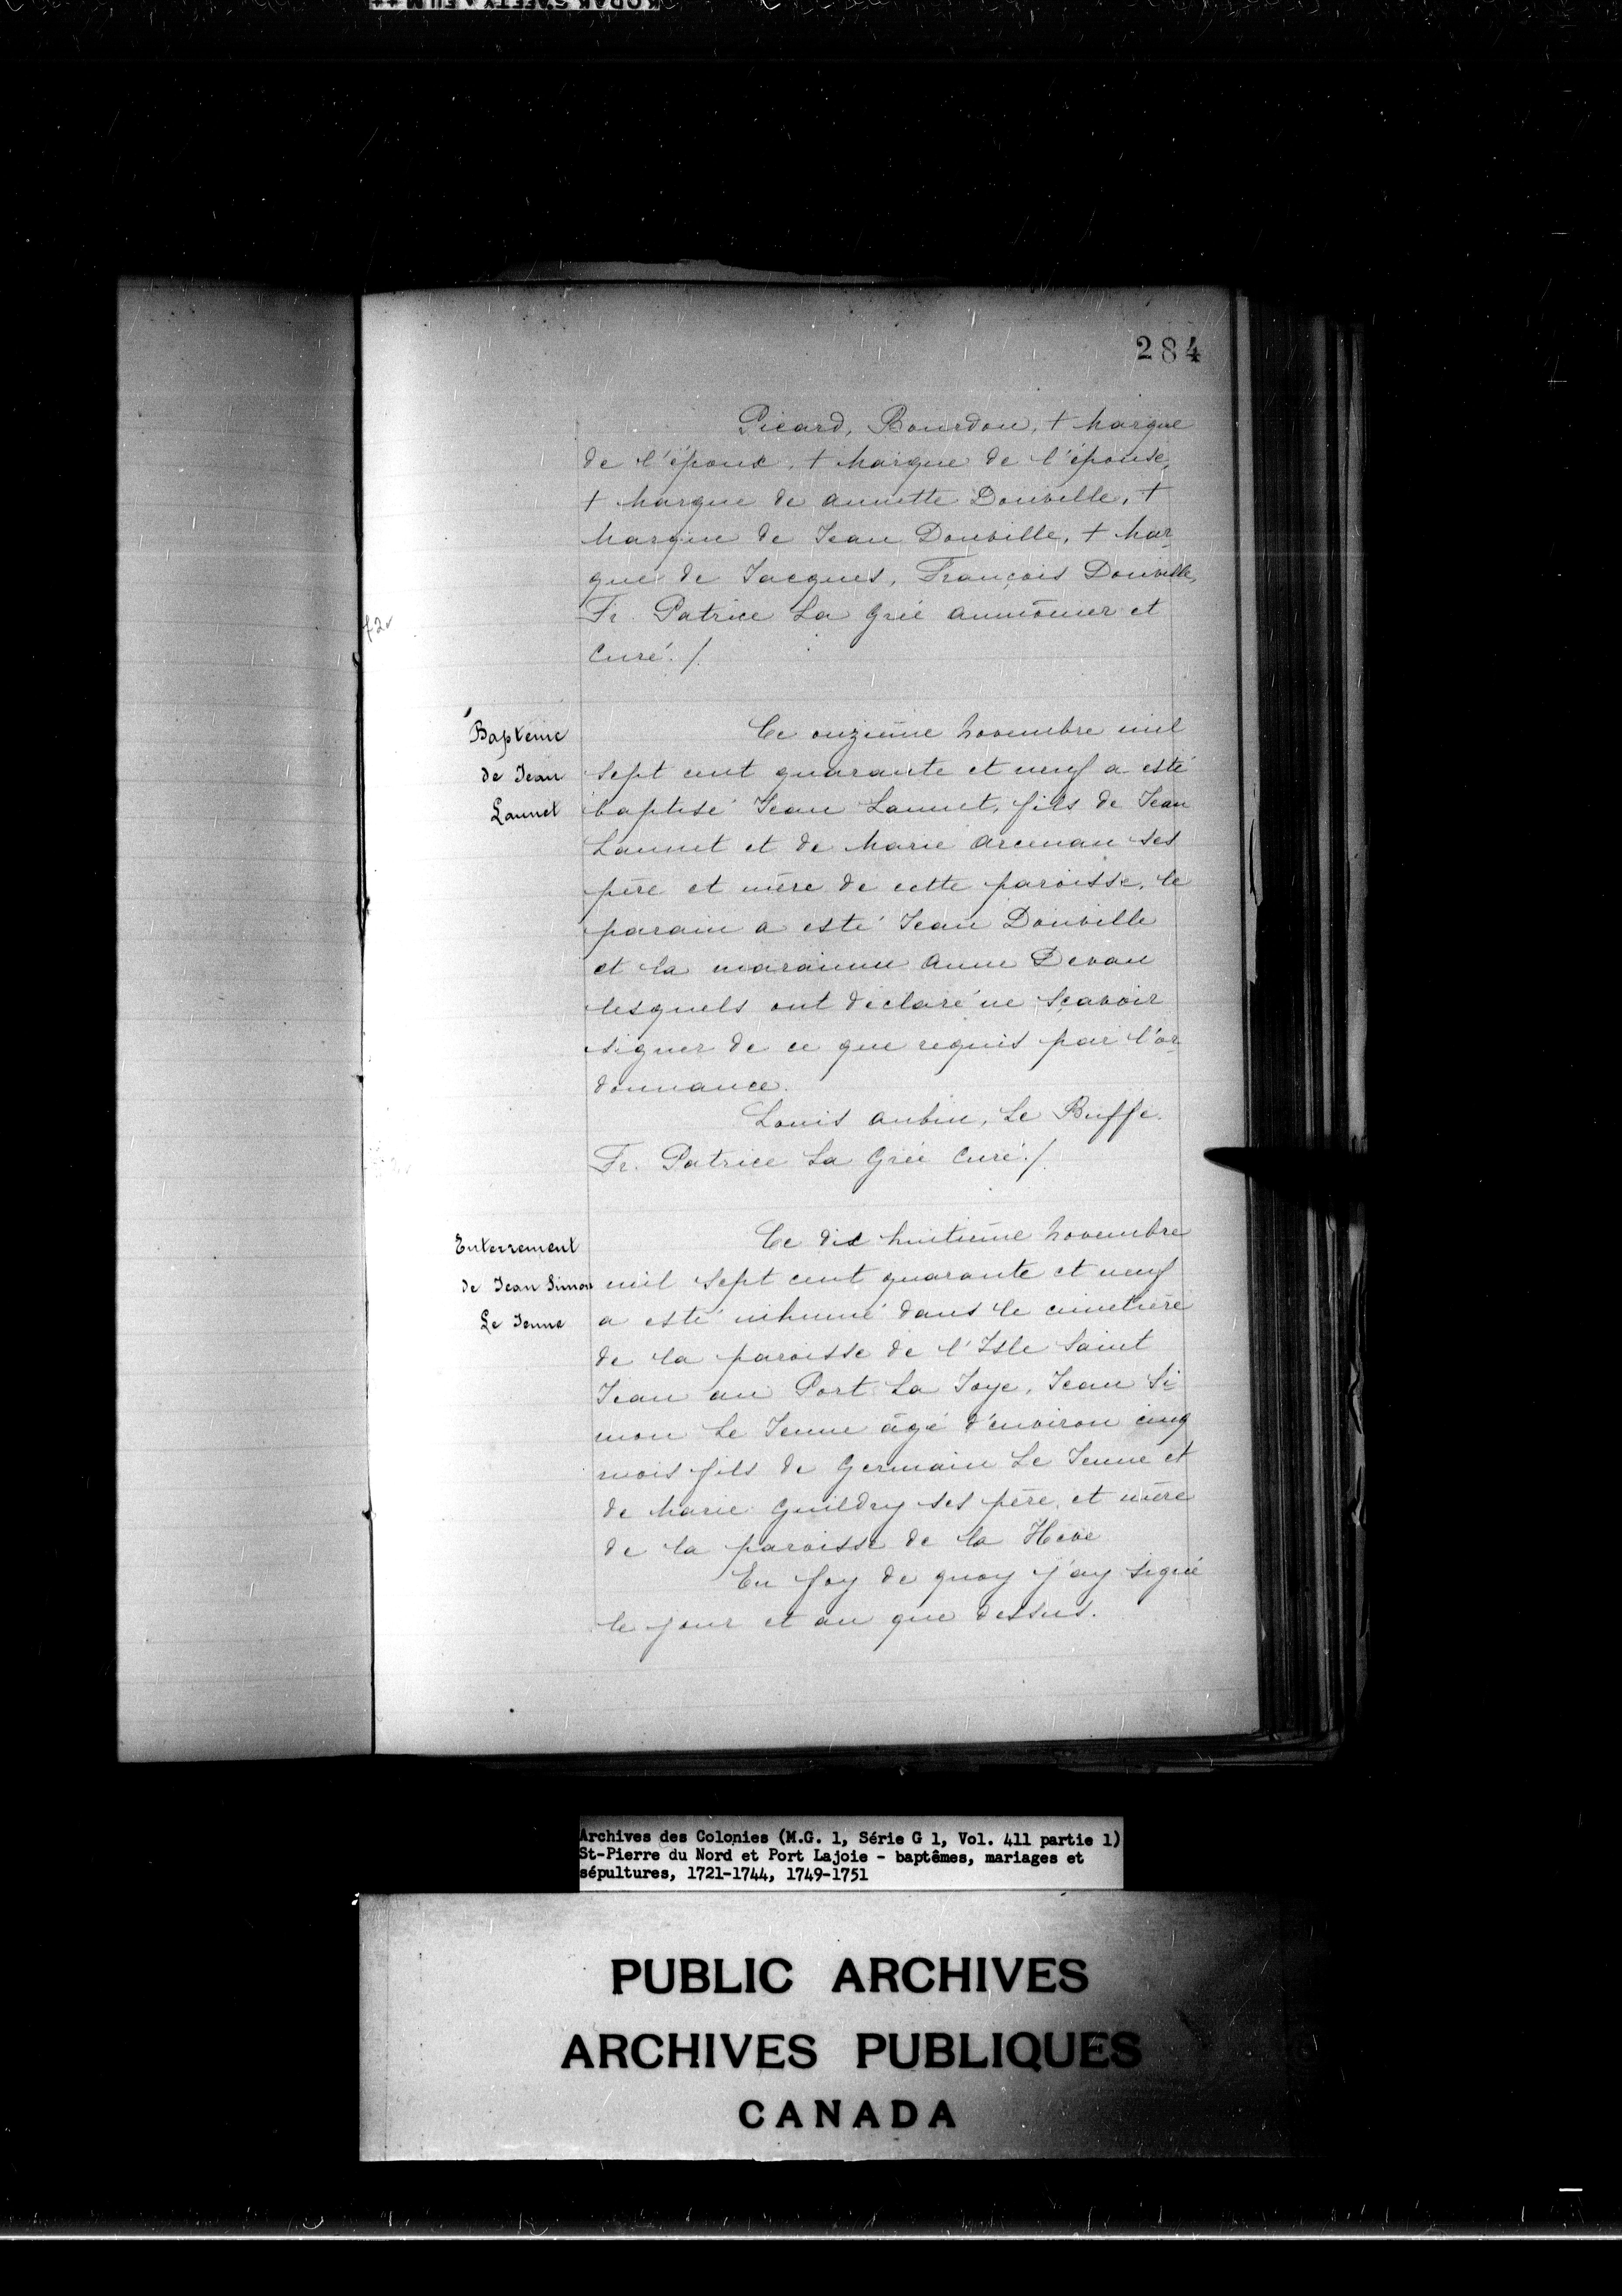 284
Picard, Bourdon, + Marque
de l'époux, + Marque de l'épouse,
+ Marque de Annette Douville, +
Marque de Jean Douville, + Mar-
que de Jacques, François Douville,
Fr. Patrice La Grée aumônier et
Curé./.
Baptême
de Jean
Launet
Ce onzième Novembre mil
sept cent quarante et neuf a esté
baptisé Jean Launet, fils de Jean
Launet et de Marie Arcenau ses
père et mère de cette paroisse, le
parain a esté Jean Douville
et la marainne Anne Devau
lesquels ont déclaré ne sçavoir
signer de ce que requis par l'or-
donnance.
Louis Aubin, Le Buffe.
Fr. Patrice La Grée Curé./.
Enterrement
de Jean Simon
Le Jeune
Ce dix huitième Novembre
mil sept cent quarante et neuf
a esté inhumé dans le cimetière
de la paroisse de l'Isle Saint
Jean au Port La Joye, Jean Si-
mon Le Jeune âgé d'environ cinq
mois fils de Germain Le Jeune et
de Marie Guildry ses père et mère
de la paroisse de la Heve
En foy de quoy j'ay signé
le jour et an que dessus.
Archives des Colonies (M.G. 1, Série G 1, Vol. 411 partie 1)
St-Pierre du Nord et Port Lajoie - baptêmes, mariages et
sépultures, 1721-1744, 1749-1751
PUBLIC ARCHIVES
ARCHIVES PUBLIQUES
CANADA